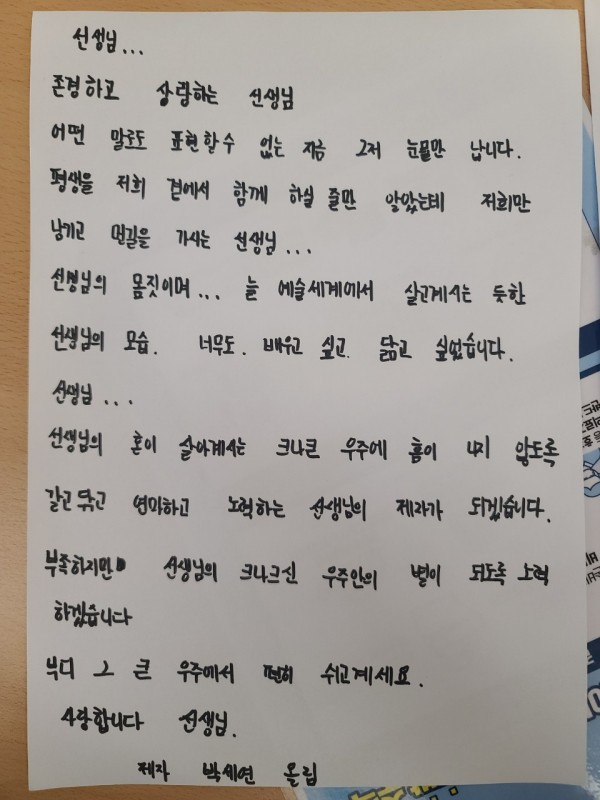 선생님...
존경하고 사랑하는 선생님
어떤 말로도 표현할수 없는 지금 그저 눈물만 납니다.
평생을 저희 곁에서 함께 하실 줄만 알았는데 저희만
남기고 먼길을 가시는 선생님...
선생님의 몸짓이며... 늘 예술세계에서 살고계시는 듯한
선생님의 모습. 너무도. 배우고 싶고. 닮고 싶었습니다.
선생님...
선생님의 혼이 살아계시는 크나큰 우주에 흠이 나지 않도록
갈고 닦고 연마하고 노력하는 선생님의 제자가 되겠습니다.
부족하지만 선생님의 크나크신 우주안의 별이 되도록 노력
하겠습니다
부디 그 큰 우주에서 편히 쉬고계세요.
사랑합니다 선생님.
제자 박세연 올림